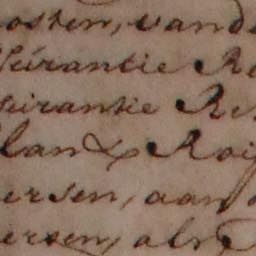 osten, vand
Seirantie Re
seirantie Re
lan & Roij
ersen, aan
ersen, als